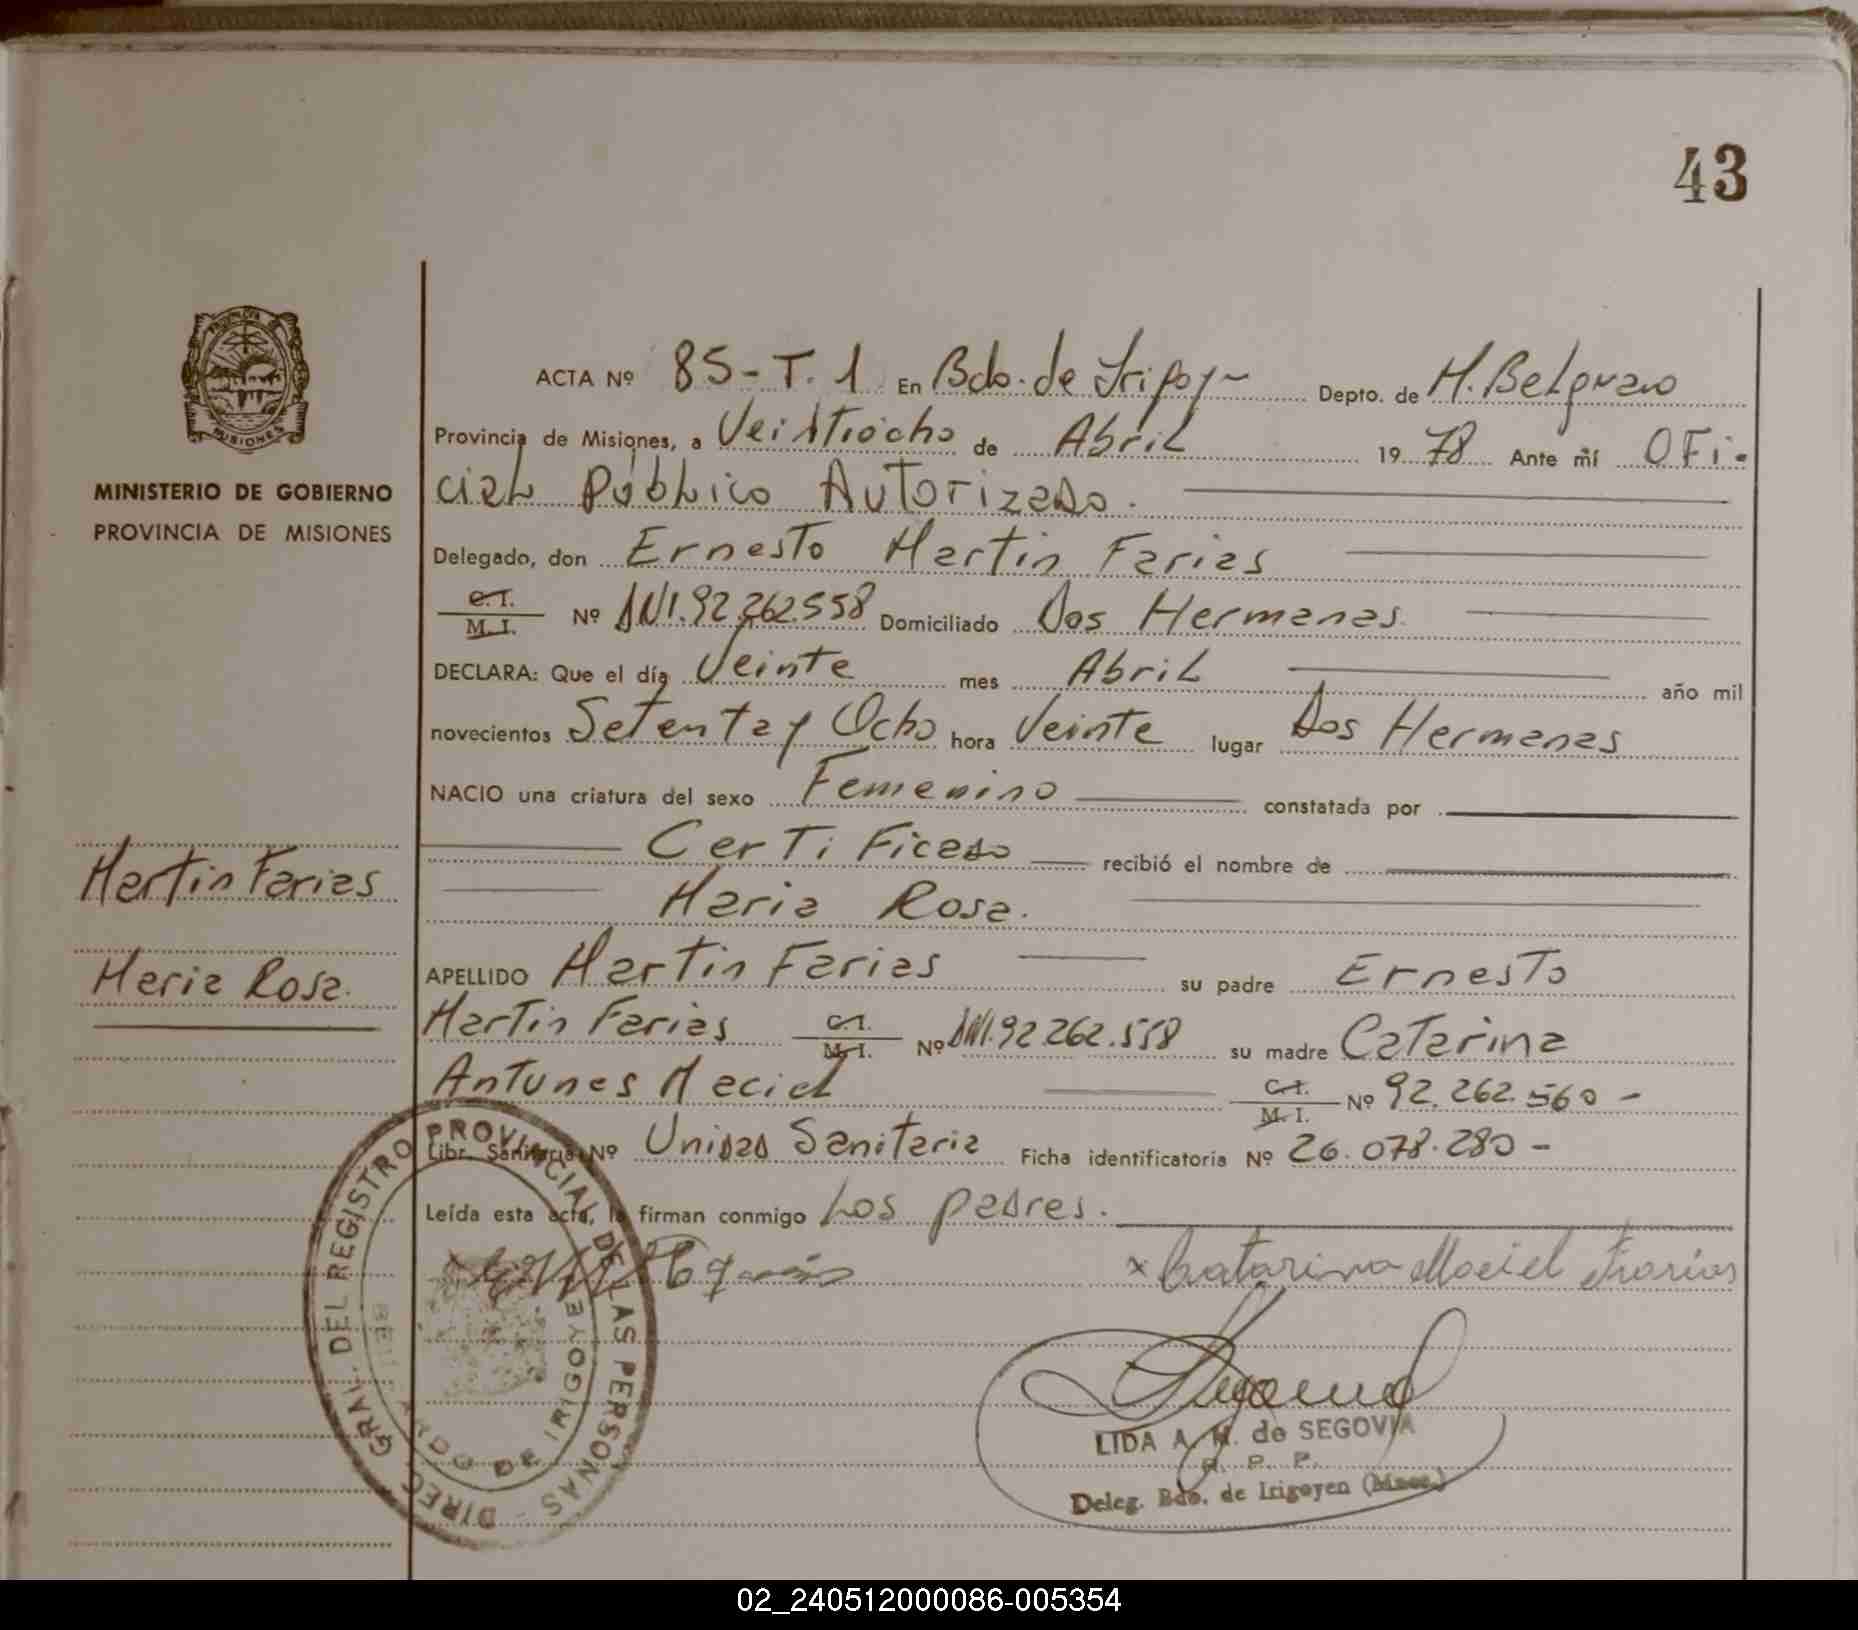 43
PROVINCIA DE
MISIONES
MINISTERIO DE GOBIERNO
PROVINCIA DE MISIONES
Martin Farias
Maria Rosa.
ACTA Nº 85-T.1 En Bdo. de Irigoy~ Depto. de M. Belgrano
Provincia de Misiones, a Veintiocho de Abril 1978 Ante mí OFi-
cial Público Autorizado.
Delegado, don Ernesto Martin Farias
C.I. / M.I. Nº DNI.92.262.558 Domiciliado Dos Hermanas.
DECLARA: Que el día Veinte mes Abril año mil
novecientos Setenta y Ocho hora Veinte lugar Dos Hermanas
NACIO una criatura del sexo Femenino constatada por
Certificado recibió el nombre de
Maria Rosa.
APELLIDO Martin Farias su padre Ernesto
Martin Farias C.I. / M.I. Nº DNI.92.262.558 su madre Catarina
Antunes Maciel C.I. / M.I. Nº 92.262.560 -
Libr. Sanitaria Nº Unidad Sanitaria Ficha identificatoria Nº 26.078.280 -
Leída esta acta, la firman conmigo Los padres.
x Catarina Maciel Frarias
DIREC. GRAL. DEL REGISTRO PROVINCIAL DE LAS PERSONAS -
BERNARDO DE IRIGOYEN
LIDA A. M. de SEGOVIA
R. P. P.
Deleg. Bdo. de Irigoyen (Mnes.)
02_240512000086-005354